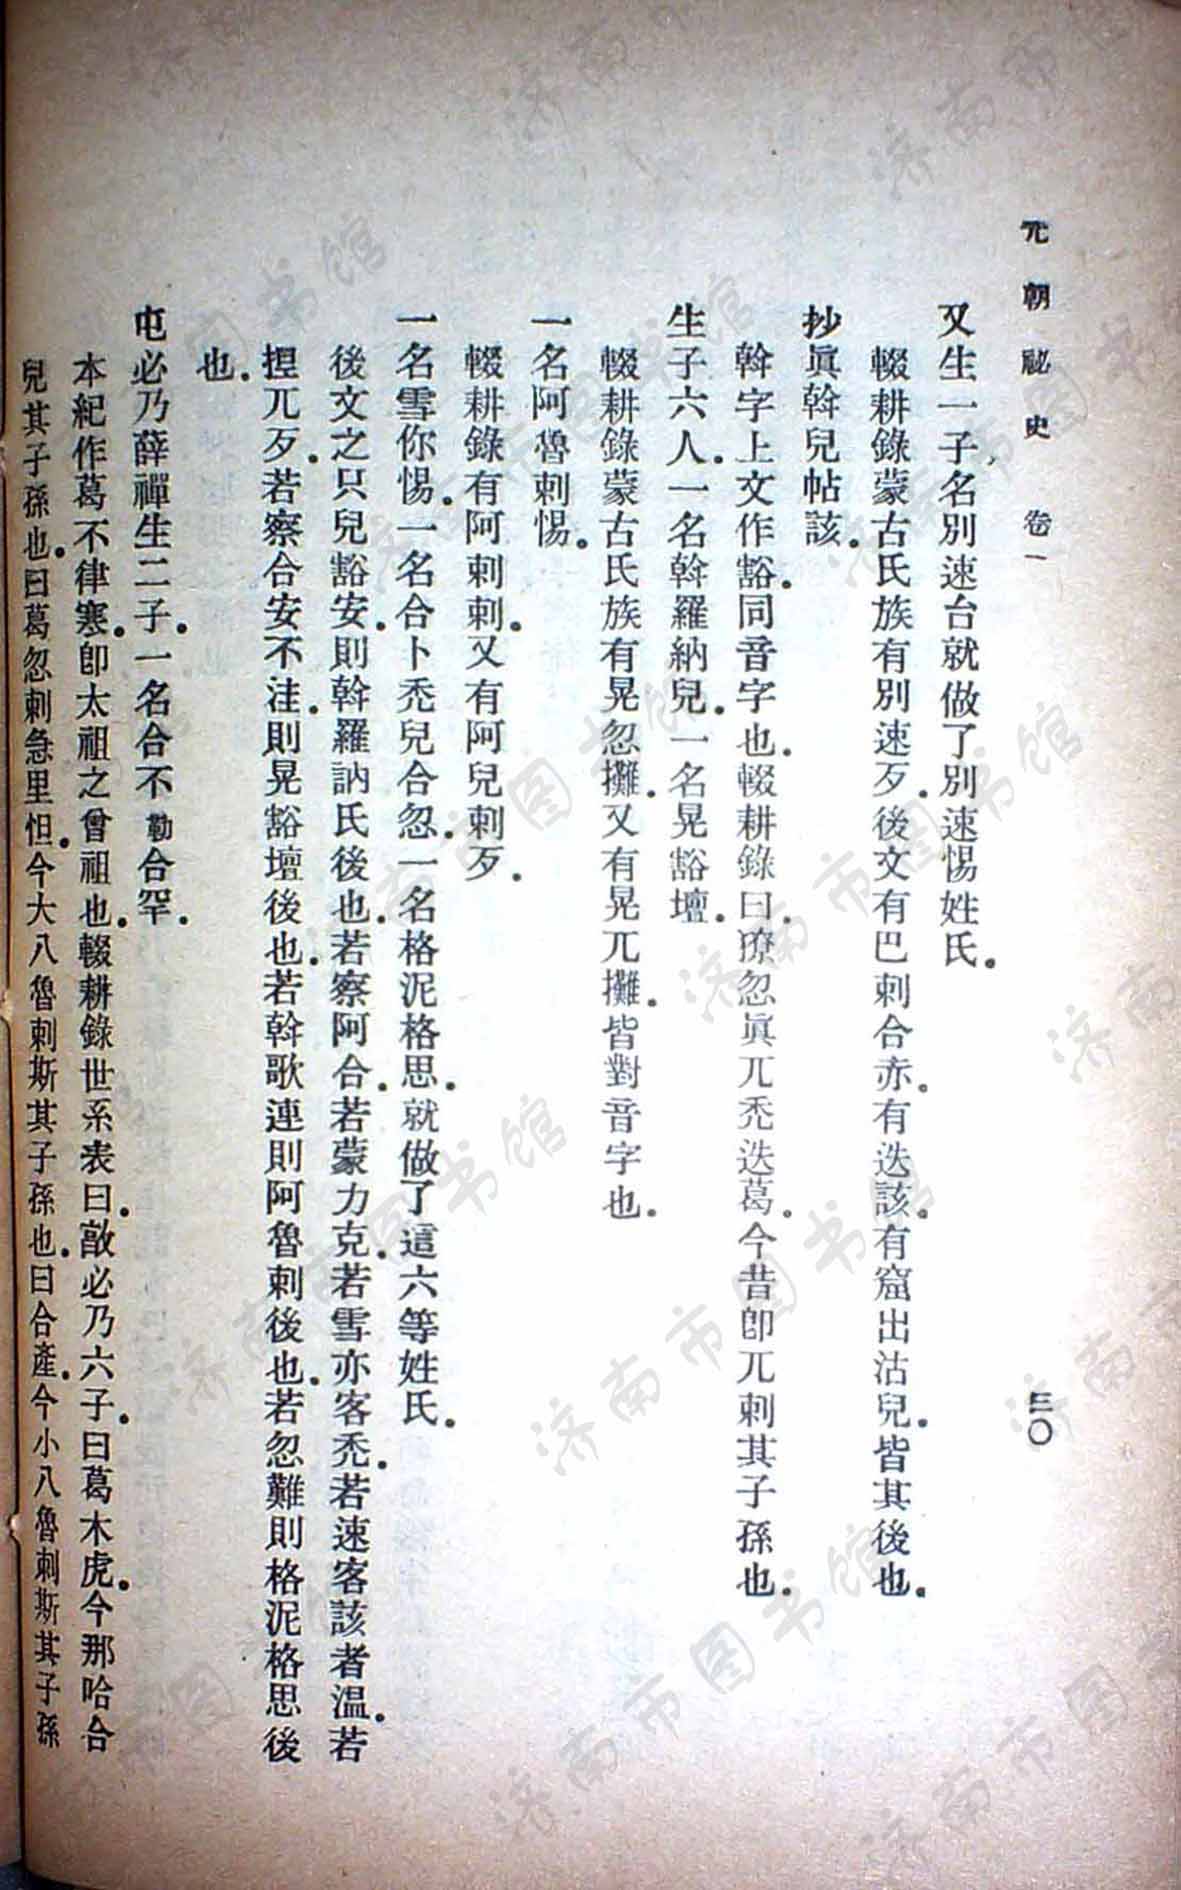 元朝祕史 卷一 三〇
又生一子名別速台就做了別速惕姓氏。
輟耕錄蒙古氏族有別速歹。後文有巴剌合赤。有迭該。有窟出沽兒。皆其後也。
抄眞斡兒帖該。
斡字上文作豁。同音字也。輟耕錄曰。獠忽眞兀禿迭葛。今昔卽兀剌其子孫也。
生子六人。一名斡羅納兒。一名晃豁壇。
輟耕錄蒙古氏族有晃忽攤。又有晃兀攤。皆對音字也。
一名阿魯剌惕。
輟耕錄有阿剌剌。又有阿兒剌歹。
一名雪你惕。一名合卜禿兒合忽。一名格泥格思。就做了這六等姓氏。
後文之只兒豁安。則斡羅訥氏後也。若察阿合。若蒙力克。若雪亦客禿。若速客該者溫。若
捏兀歹。若察合安不洼。則晃豁壇後也。若斡歌連則阿魯剌後也。若忽難則格泥格思後
也。
屯必乃薛禪生二子。一名合不勒合罕。
本紀作葛不律寒。卽太祖之曾祖也。輟耕錄世系表曰。敵必乃六子。曰葛木虎。今那哈合
兒其子孫也。曰葛忽剌急里怛。今大八魯剌斯其子孫也。曰合產。今小八魯剌斯其子孫
济南市图书馆